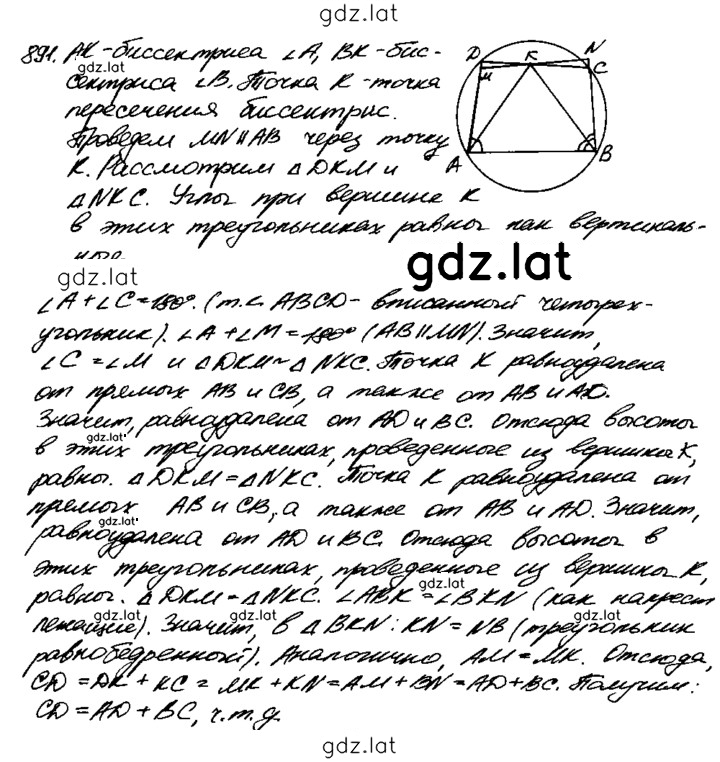 gdz.lat
891. AK - биссектриса ∠A, BK - бис-
gdz.lat
сектриса ∠B. Точка K - точка
пересечения биссектрис.
Проведем MN∥AB через точку
K. Рассмотрим △DKM и
△NKC. Углы при вершине K
в этих треугольниках равны как вертикаль-
ные
D
K
N
M
C
A
B
gdz.lat
gdz.lat
∠A + ∠C = 180°. (т.к. ABCD - вписанный четырех-
угольник). ∠A + ∠M = 180° (AB∥MN). Значит,
∠C = ∠M и △DKM ~ △NKC. Точка K равноудалена
от прямых AB и CB, а также от AB и AD.
Значит, равноудалена от AD и BC. Отсюда высоты
gdz.lat
в этих треугольниках, проведенные из вершины K,
равны. △DKM = △NKC. Точка K равноудалена от
прямых AB и CB, а также от AB и AD. Значит,
gdz.lat
равноудалена от AD и BC. Отсюда высоты в
этих треугольниках, проведенные из вершины K,
gdz.lat
равны. △DKM = △NKC. ∠ABK = ∠BKN (как накрест
gdz.lat gdz.lat gdz.lat
лежащие). Значит, в △BKN: KN = NB (треугольник
равнобедренный). Аналогично, AM = MK. Отсюда,
CD = DK + KC = MK + KN = AM + BN = AD + BC. Получим:
CD = AD + BC, ч.т.д.
gdz.lat